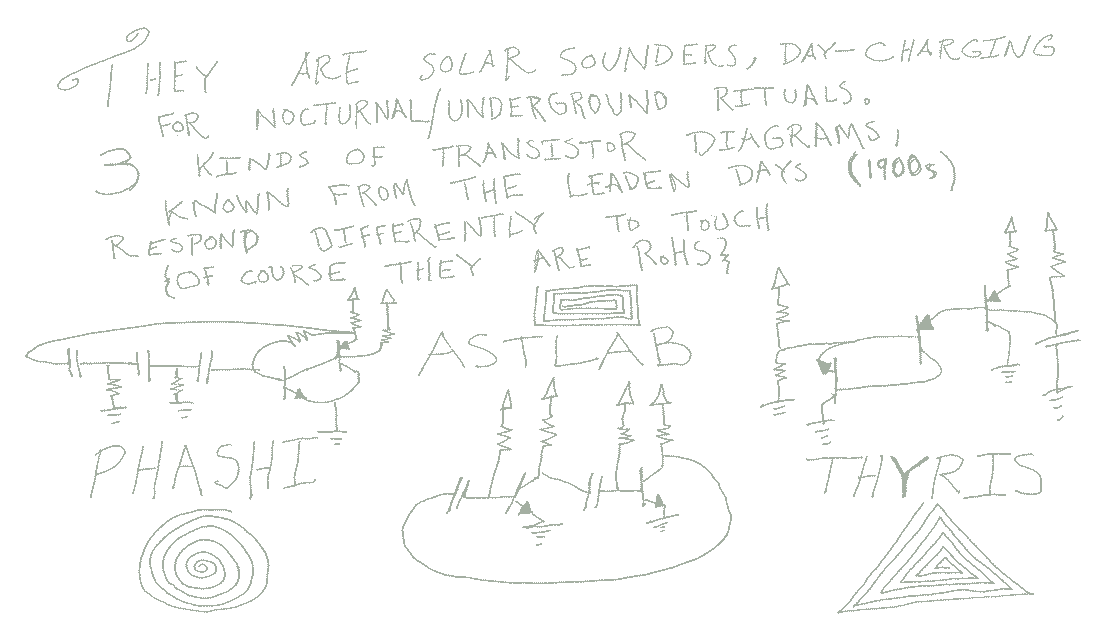 THEY ARE SOLAR SOUNDERS, DAY-CHARGING
FOR NOCTURNAL/UNDERGROUND RITUALS.
3 KINDS OF TRANSISTOR DIAGRAMS,
KNOWN FROM THE LEADEN DAYS (1900s)
RESPOND DIFFERENTLY TO TOUCH
{OF COURSE THEY ARE RoHS}
ASTLAB
PHASHI
THYRIS